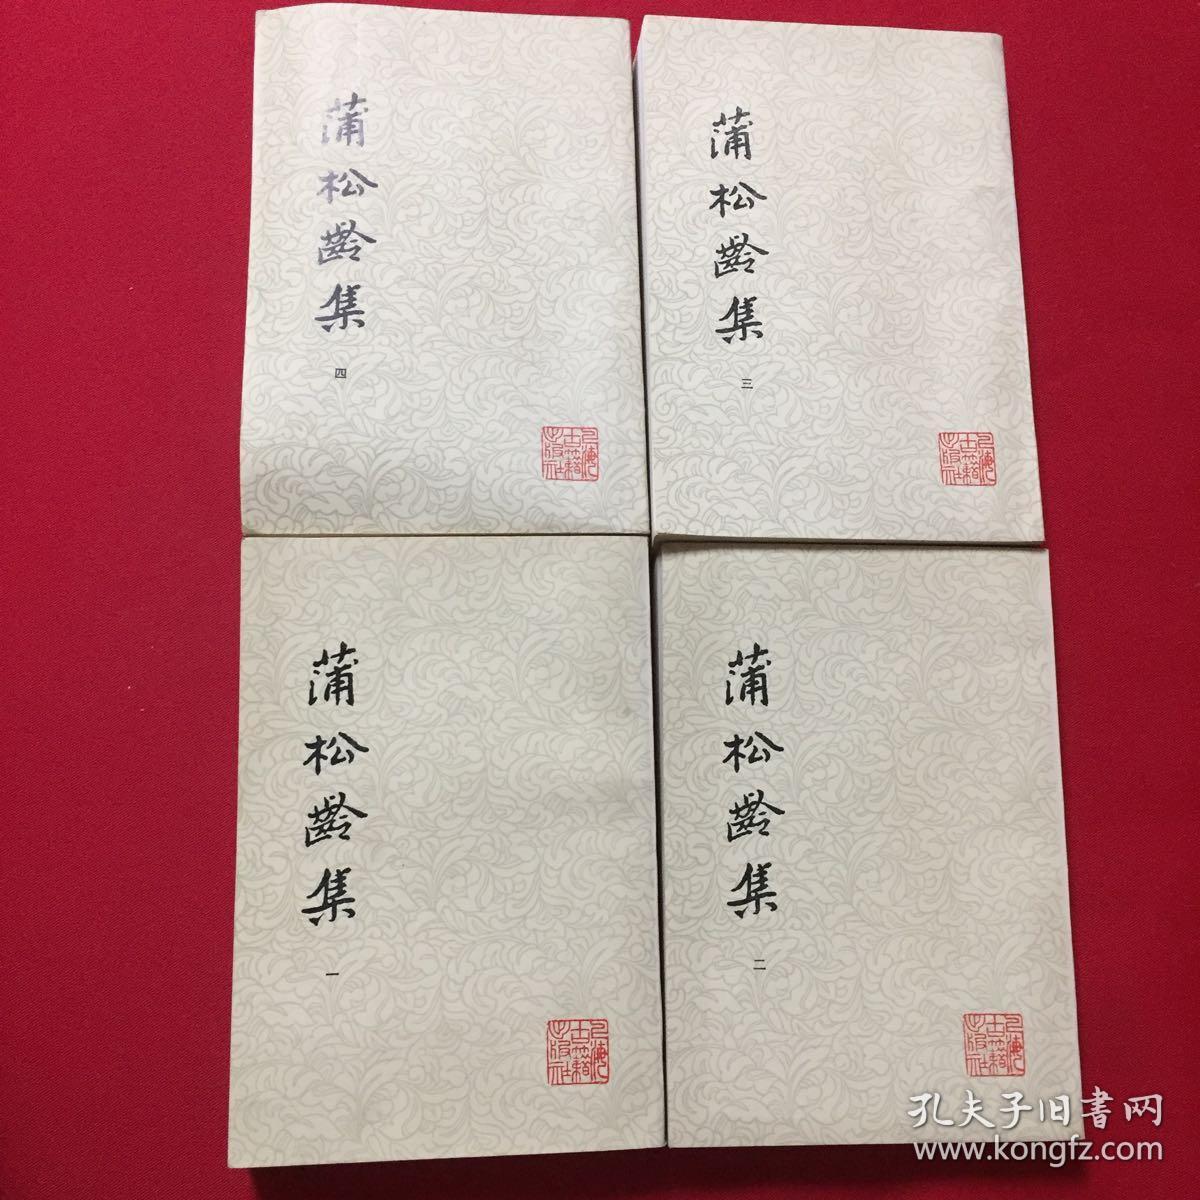 蒲松齡集
四
上海古籍出版社
蒲松齡集
三
上海古籍出版社
蒲松齡集
一
上海古籍出版社
蒲松齡集
二
上海古籍出版社
孔夫子旧書网
www.kongfz.com